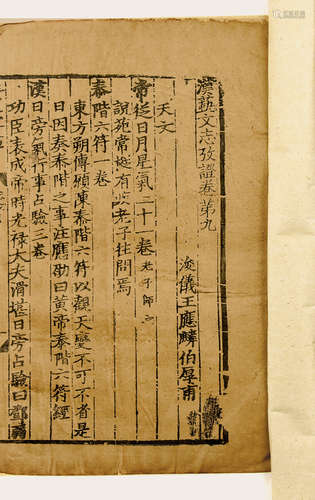 漢藝文志攷證卷第九
浚儀王應麟伯厚甫
天文
常從日月星氣二十一卷 老子師之
說苑常摐有疾老子往問焉
泰階六符一卷
東方朔傳願陳泰階六符以觀天變不可不省是
日因奏泰階之事注應劭曰黃帝泰階六符經
漢日旁氣行事占驗三卷
功臣表成帝時光祿大夫滑堪日旁占驗曰鄧弱